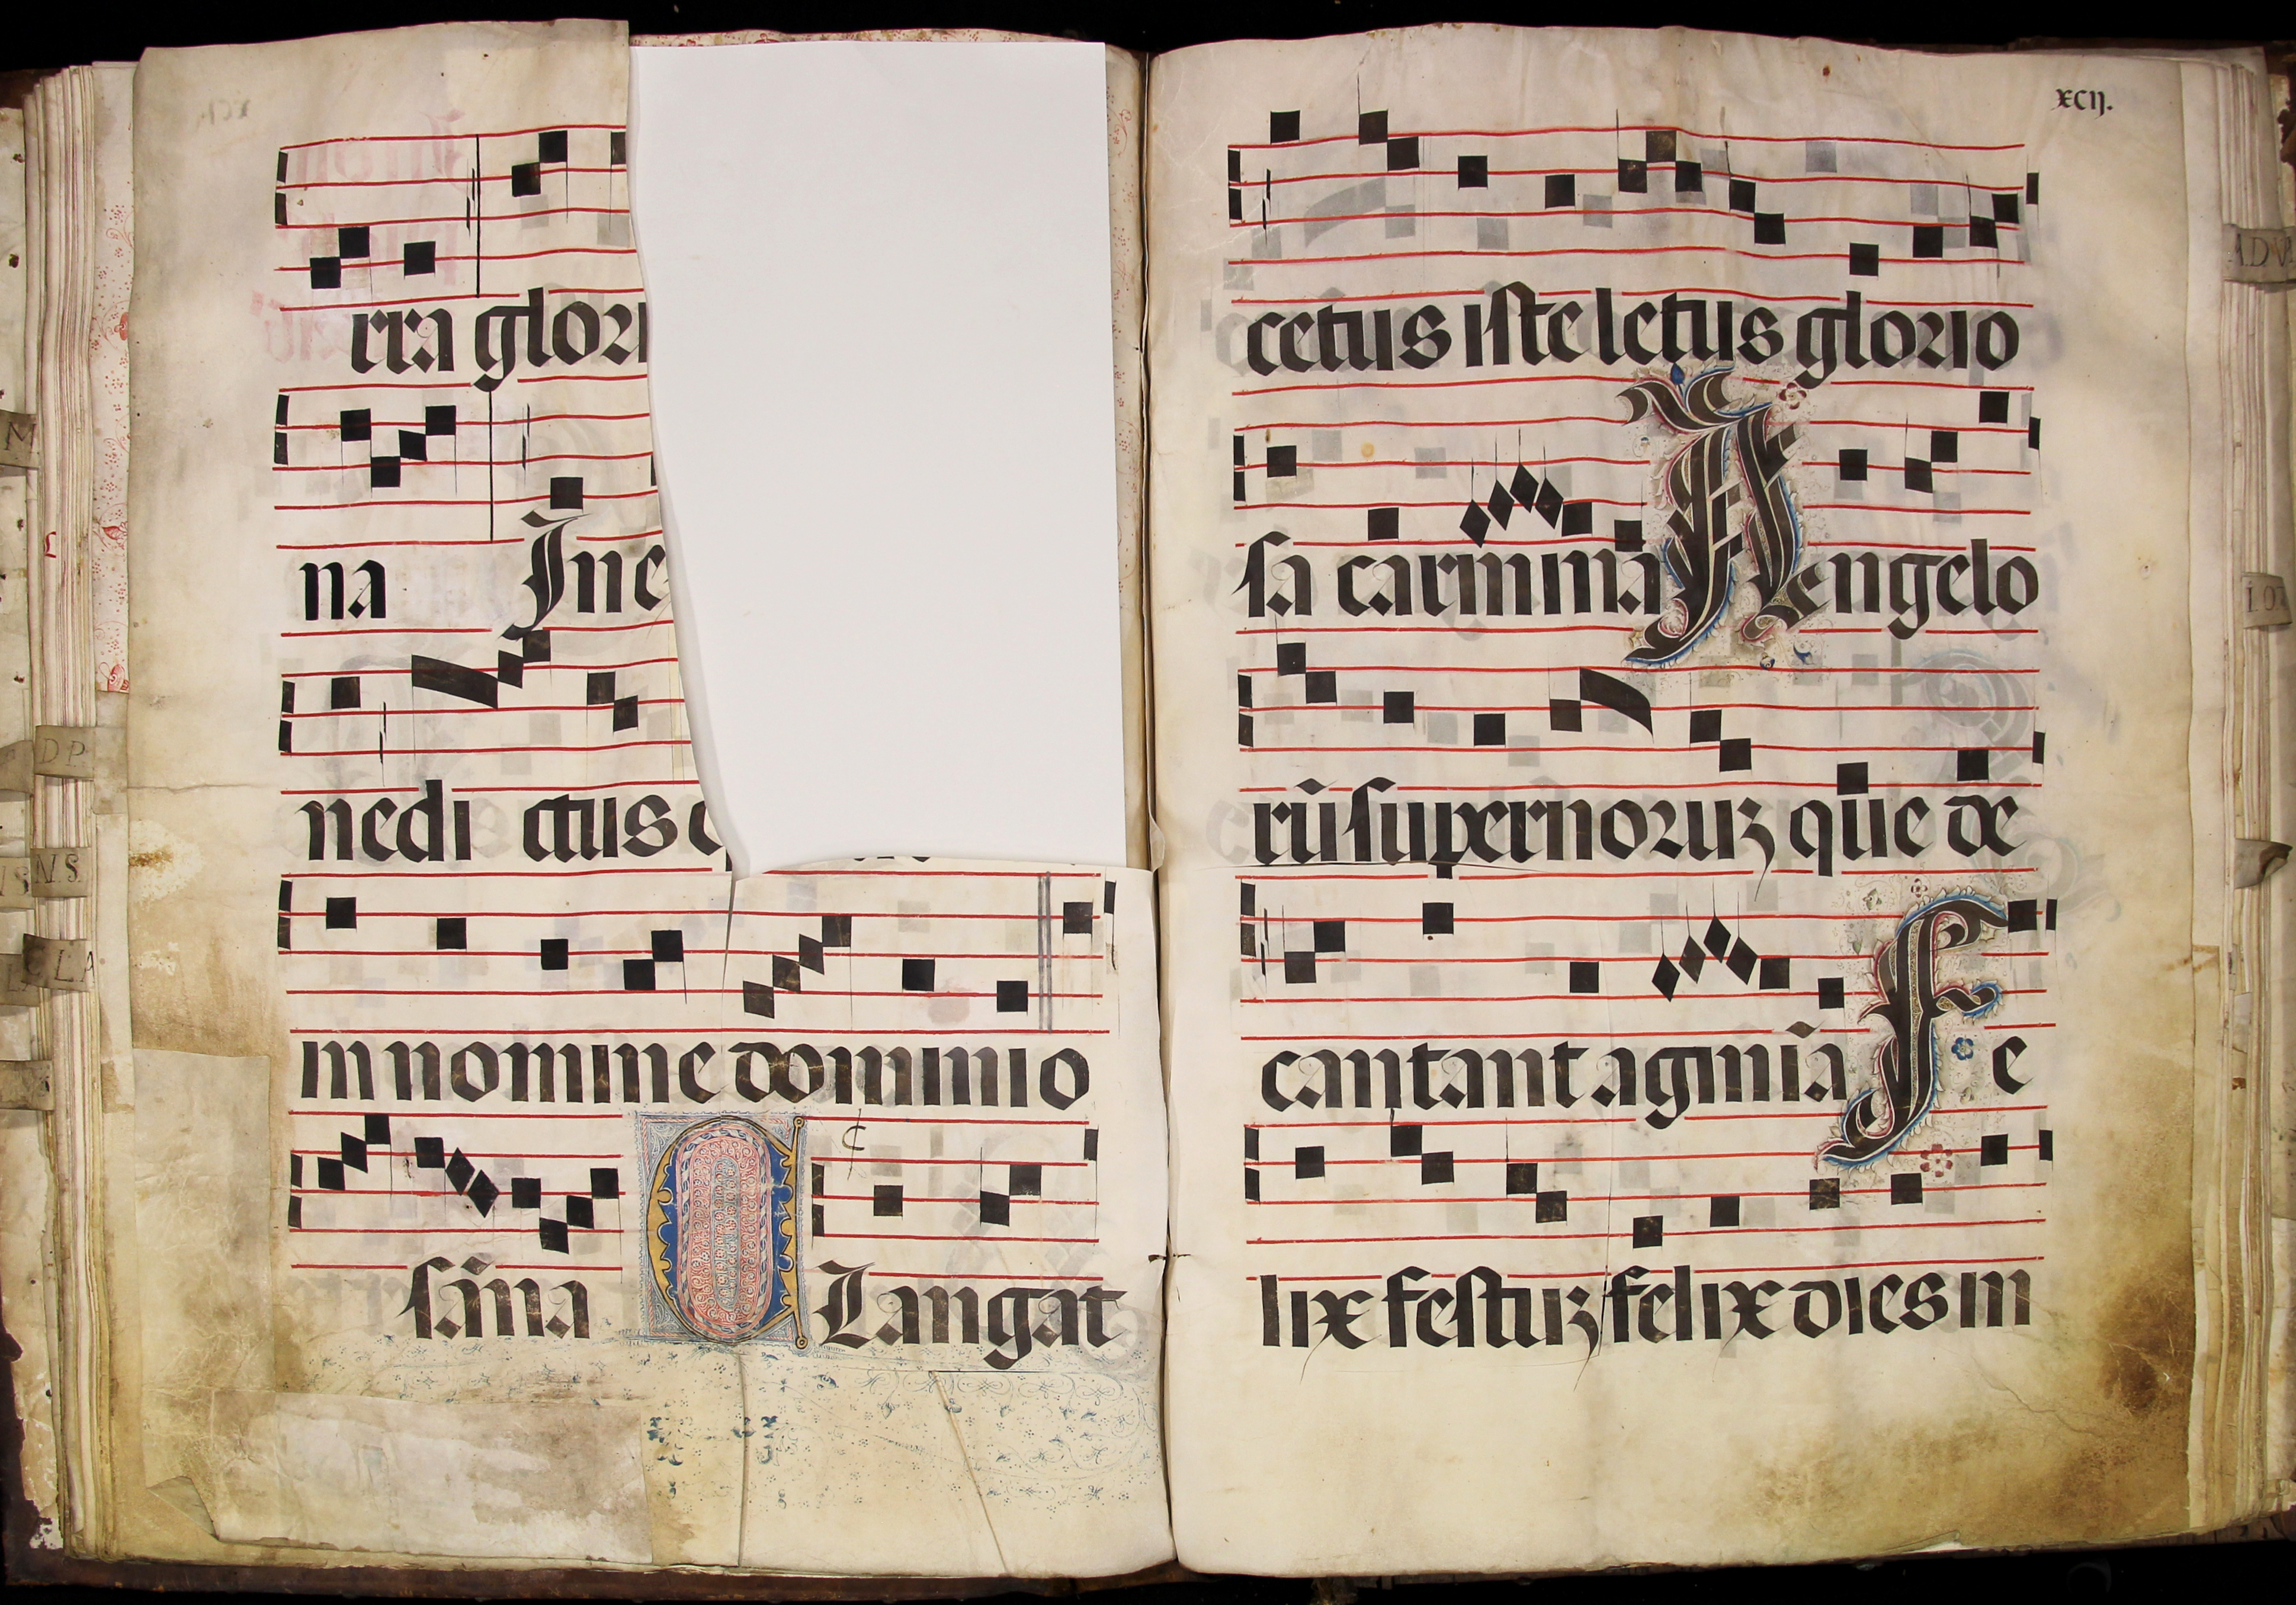 rra glori
na In e
nedi ctus q
in nomine domini o
sāna Langat
xcij.
cetus iste letus glorio
sa carminā Aengelo
rū supernoruꝫ que de
cantant agminā Fe
lix festuꝫ felix dies in
M
DP
NS
CLA
ADV